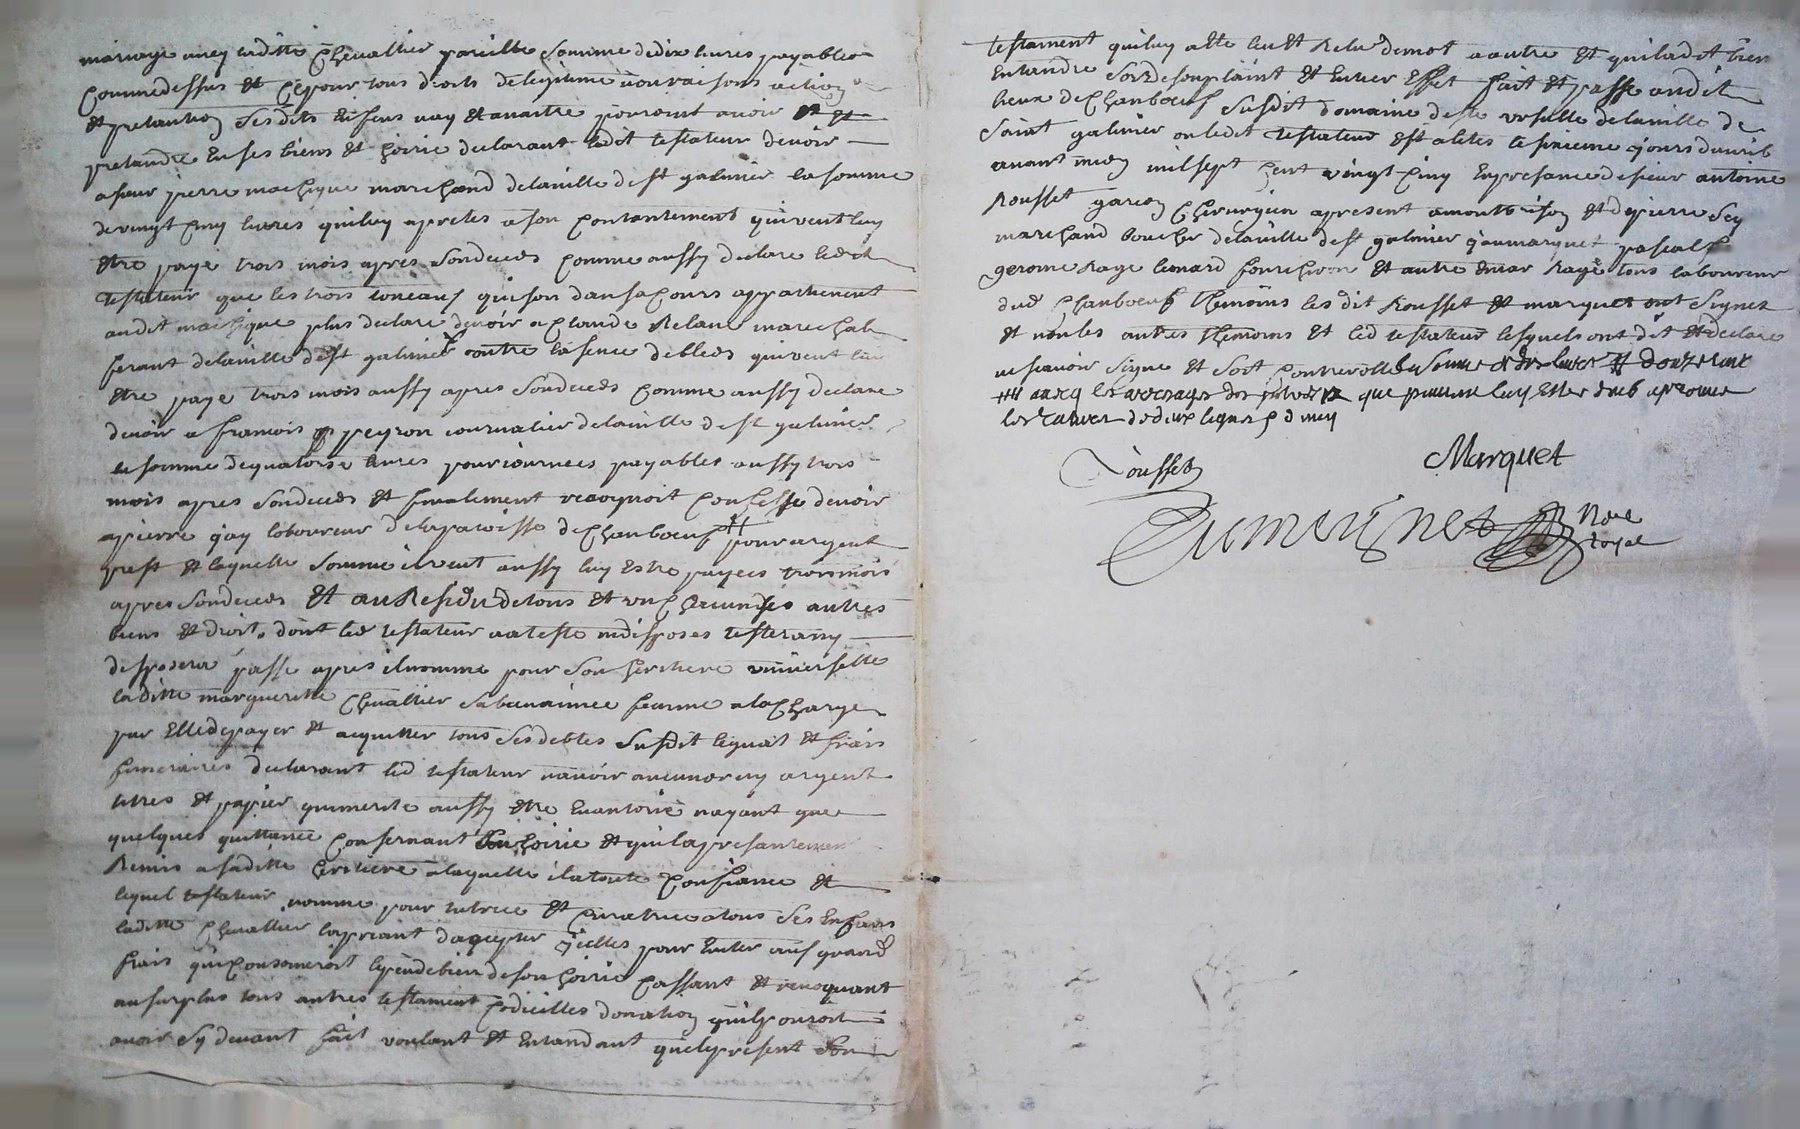 mariage avecq laditte Chevallier pareille somme de dix livres payables
comme dessus et ce pour tous droits de legitime noms raisons action
et pretantion sesdits enfens nay et anaitre pouront avoir et
pretandre en ses biens et hoirie declarant ledit testateur devoir
a sieur pierre machique marchand de la ville de st galmier la somme
de vingt cinq livres quil luy a pretes a son contantement quil veut luy
etre paye trois mois apres son deces comme aussy declare ledit
testateur que les trois toneaux qui son dans sa cours appartienent
audit machique plus declare devoir a claude Relave marechal
ferant de la ville de st galmier outre la ferme de bleds quil veut luy
etre paye trois mois aussy apres son deces comme aussy declare
devoir a francois peyron journalier de la ville de st galmier
la somme de quatorse livres pour journees payables aussy trois
mois apres son deces et finalement recognoit confesse devoir
a pierre jay laboureur de la paroisse de Chanboeuf # pour argent
prest et laquelle somme il veut aussy luy estre payee trois mois
apres son deces et au Residu de tous et un chacun ses autres
biens et droits dont led testateur na teste ni disposes testera ny
disposera passe apres il nomme pour son heritiere universelle
laditte margueritte Chevallier sa bienaimee femme a la charge
par elle de payer et acquitter tous ses debtes susdit legat et frais
funeraires declarant led testateur navoir aucun or ny argent
titres et papier qui merite aussy etre Inantorié nayant que
quelques quittance consernant son hoirie et quil a presantement
Remis a saditte heritiere a laquelle il a toute confiance et
lequel testateur nomme pour tutrice et curatrice a tous ses enfans
laditte Chevallier la priant daccepter jcelles pour eviter aux grand
frais qui consomeroit le peu de bien de son hoirie cassant et revoquant
au surplus tous autres testament codicilles donation quil pouroit
avoir cy devant fait voulant et entandant que le present son
testament quil luy a ete leu et Relu de mot a autre et quil a dit bien
entandre sorte son plaint et entier effet fait et passe audit
lieux de Chanboeuf susdit domaine de ste ursulle de la ville de
saint galmier ou ledit testateur est alites le sixieme jours davril
avant midy mil sept cent vingt cinq en presance de sieur antoine
Rousset garcon chirurgien a present a montbrison et de pierre sey
marchand boucher de la ville de st galmier jean marquet pascal
gerome Rage leonard fourchon et autre Rage tous laboureur
dud Chanboeuf themoins les dit Rousset et marquet ont signes
et non les autres themoins et led testateur lesquels ont dit et declare
ne savoir signe et soit controllé la somme de dix livres # douze livres
#### avecq les arerages des interets que peuvent luy ester deub aprouve
les ratures de deux lignes e demy
Rousset
Marquet
Dumoignet
Nore
Royal